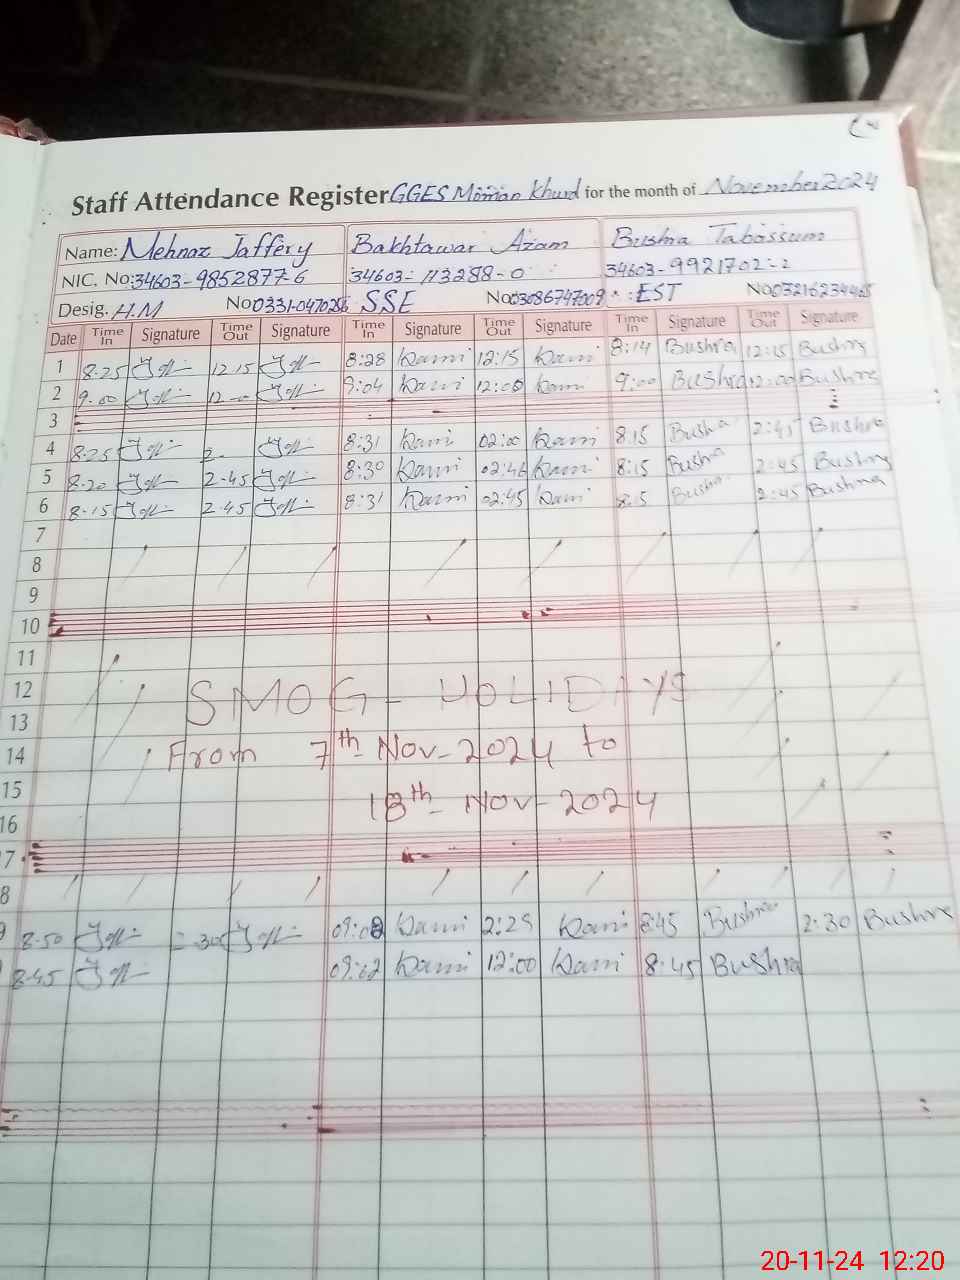 Staff Attendance Register GGES Momian Khurd for the month of November 2024
Name: Mehnaz Jaffery Bakhtawar Azam Bushra Tabassum
NIC. No: 34603-9852877-6 34603-113288-0 34603-9921702-2
Desig. H.M No 0331-0470286 SSE No 03086747009 EST No 03216234465
Date Time In Signature Time Out Signature Time In Signature Time Out Signature Time In Signature Time Out Signature
1 8:25 12 15 8:28 12:15 8:14 Bushra 12:15 Bushra
2 9:00 12 9:04 12:00 9:00 Bushra 12:00 Bushra
3
4 8:25 2 8:31 02:00 8:15 Bushra 2:45 Bushra
5 8:20 2-45 8:30 02:46 8:15 Bushra 2:45 Bushra
6 8-15 2-45 8:31 02:45 8:15 Bushra 2:45 Bushra
7
8
9
10
11
12 SMOG - HOLIDAYS
13
14 From 7th Nov-2024 to
15 18th-Nov-2024
16
7
8
9 8-50 30 2:25 8:45 Bushra 2:30 Bushra
8-45 09:02 12:00 8:45 Bushra
20-11-24 12:20